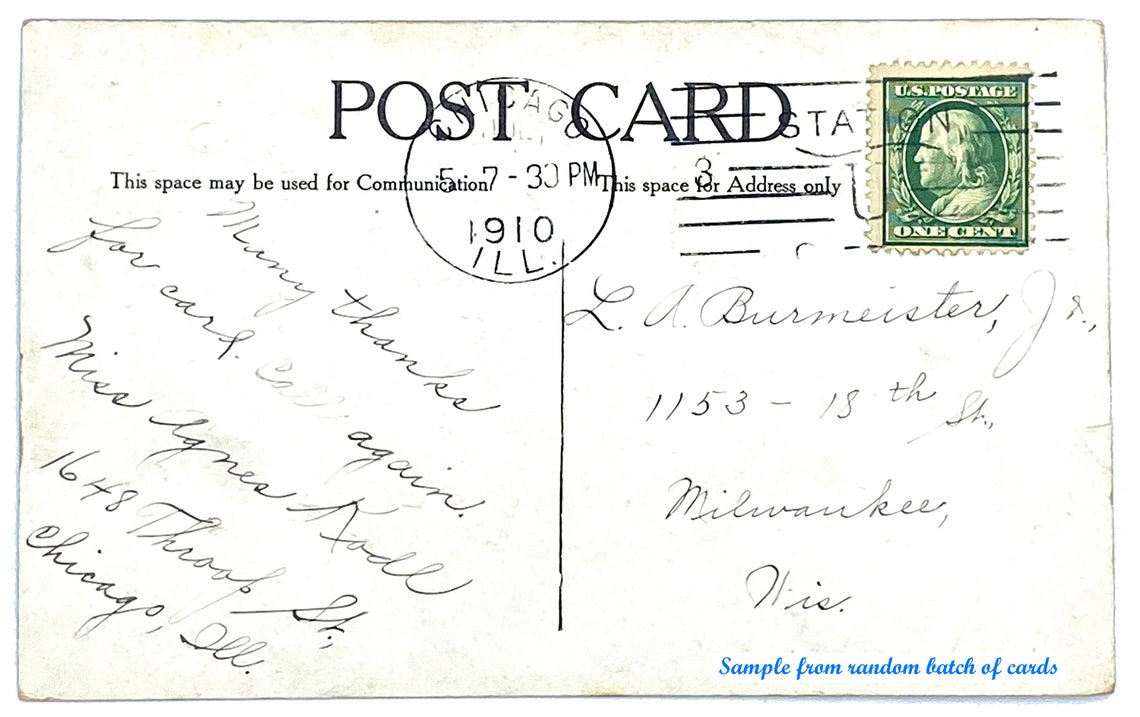 POST CARD
CHICAGO
5 7 - 30 PM
1910
ILL.
STATION
3
U.S. POSTAGE
ONE CENT
This space may be used for Communication
This space for Address only
Many thanks
for card. Call again.
Miss Agnes Rodl
1648 Throop St.,
Chicago, Ill.
L. A. Burmeister, Jr.,
1153 - 18th St.,
Milwaukee,
Wis.
Sample from random batch of cards